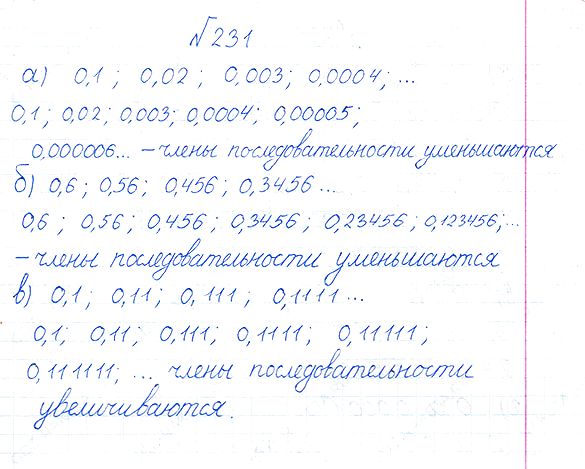 №231
а) 0,1; 0,02; 0,003; 0,0004; ...
0,1; 0,02; 0,003; 0,0004; 0,00005;
0,000006... – члены последовательности уменьшаются
б) 0,6; 0,56; 0,456; 0,3456...
0,6; 0,56; 0,456; 0,3456; 0,23456; 0,123456;...
– члены последовательности уменьшаются
в) 0,1; 0,11; 0,111; 0,1111...
0,1; 0,11; 0,111; 0,1111; 0,11111;
0,111111; ... члены последовательности
увеличиваются.